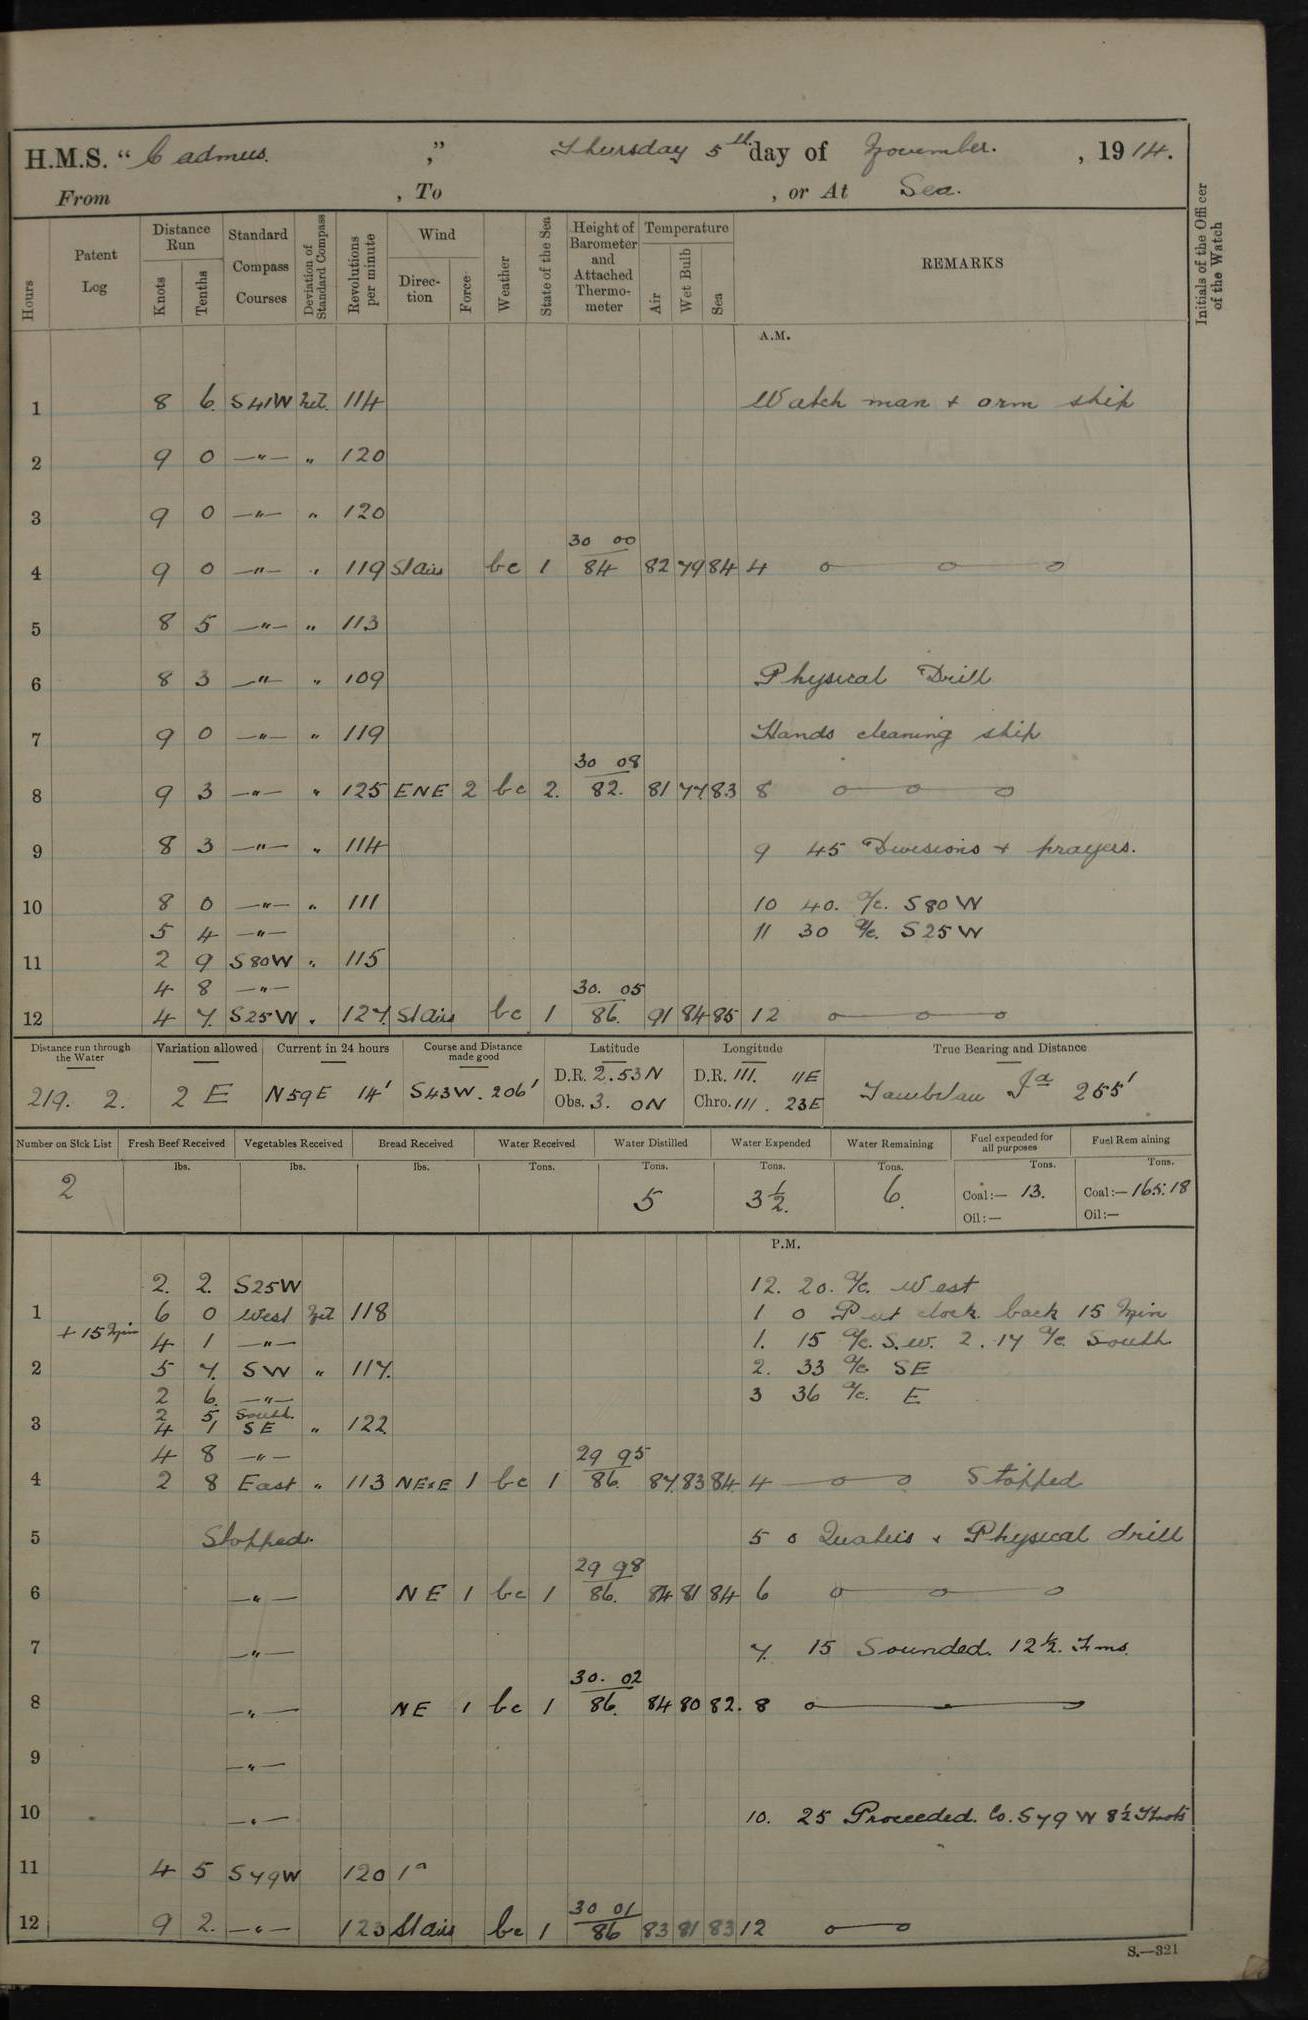 H.M.S. “ Cadmus. ,” Thursday 5th day of November. , 1914.
From , To , or At Sea.
Hours
Patent Log
Distance Run
Knots
Tenths
Standard Compass Courses
Deviation of Standard Compass
Revolutions per minute
Wind
Direc-tion
Force
Weather
State of the Sea
Height of Barometer and Attached Thermo-meter
Temperature
Air
Wet Bulb
Sea
REMARKS
Initials of the Officer of the Watch
A.M.
1 8 6 S41W 114 Watch man + arm ship
2 9 0 —"— " 120
3 9 0 —"— " 120
30 00
4 9 0 —"— " 119 Slairs bc 1 84 82 79 84 4
5 8 5 —"— " 113
6 8 3 —"— " 109 Physical Drill
7 9 0 —"— " 119 Hands cleaning ship
30 08
8 9 3 —"— " 125 ENE 2 bc 2. 82. 81 77 83 8
9 8 3 —"— " 114 9 45 Divisions + prayers.
10 8 0 —"— " 111 10 40. a/c. S80W
5 4 —"— 11 30 a/c. S25W
11 2 9 S80W " 115
4 8 —"— 30. 05
12 4 7. S25W " 127. Slairs bc 1 86. 91 84 85 12
Distance run through the Water
Variation allowed
Current in 24 hours
Course and Distance made good
Latitude
Longitude
True Bearing and Distance
219. 2. 2 E N59E 14' S43W. 206' D.R. 2.53N D.R. 111. 11E
Obs. 3. 0N Chro. 111. 23E Tambelan Id 255'
Number on Sick List
Fresh Beef Received
Vegetables Received
Bread Received
Water Received
Water Distilled
Water Expended
Water Remaining
Fuel expended for all purposes
Fuel Remaining
lbs. lbs. lbs. Tons. Tons. Tons. Tons. Tons. Tons.
2 5 3½. 6. Coal:— 13. Coal:— 165.18
Oil:— Oil:—
P.M.
2. 2. S25W 12. 20. a/c. West
1 6 0 West 118 1 0 Put clock back 15 Min
+ 15 Min 4 1 —"— 1. 15 a/c. S.W. 2. 17 a/c. South
2 5 7. SW " 117. 2. 33 a/c. SE
2 6. —"— 3 36 a/c. E
2 5 South.
3 4 1 SE " 122
4 8 —"— 29 95
4 2 8 East " 113 NExE 1 bc 1 86. 87. 83 84. 4 Stopped
5 Stopped. 5 0 Quarters + Physical drill
29 98
6 —"— NE 1 bc 1 86. 84 81 84 6
7 —"— 7. 15 Sounded. 12½. Fms.
30. 02
8 —"— NE 1 bc 1 86. 84 80 82. 8
9 —"—
10 —"— 10. 25 Proceeded. Co. S79W 8½ Knots
11 4 5 S79W 120
30 01
12 9 2. —"— 123 Slairs bc 1 86 83 81 83 12
S.—321